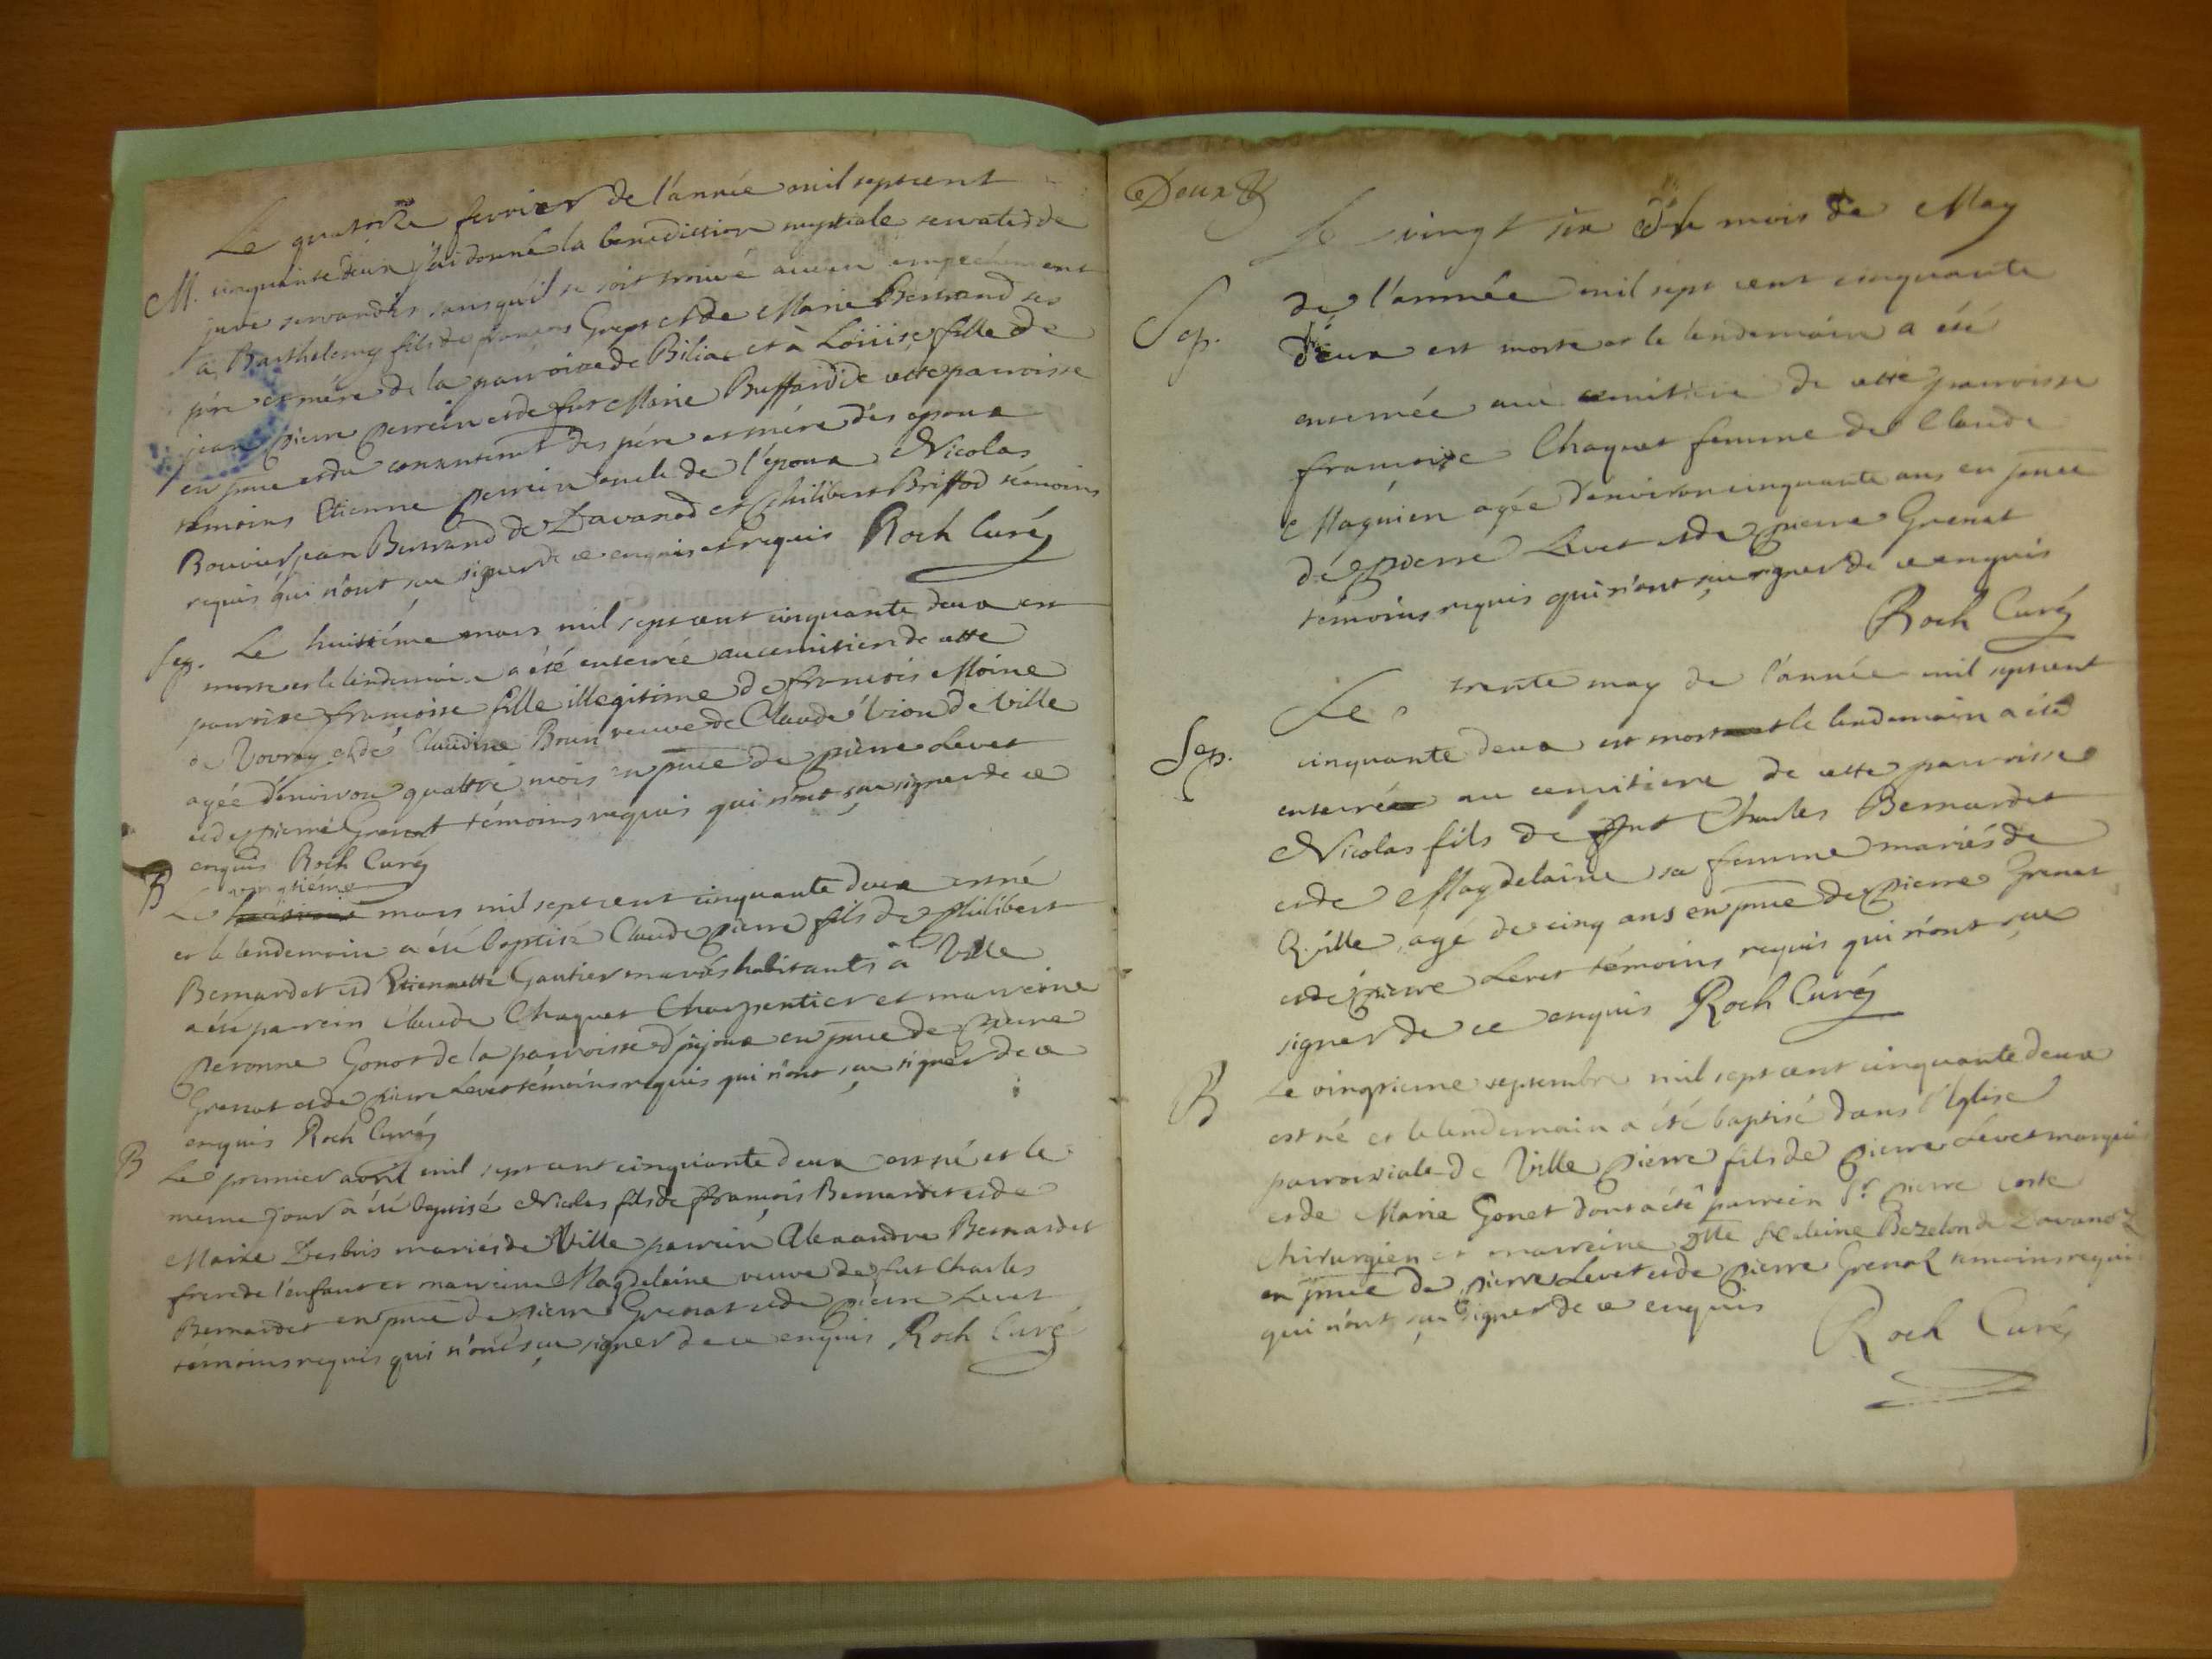 Le quatorze fevrier de l'année mil septcent
M. cinquante deux j'ai donné la benediction nuptiale servatis de
jure servandis sans qu'il se soit trouvé aucun empechement
à Barthelemy fils de françois Greps et de Marie Bertrand ses
père et mère de la parroisse de Biliac et à Loüise fille de
jean pierre perrein et de fut Marie Buffardi de cette parroisse
en pnce et du consentemt des père et mère des epoux
temoins Etienne perrein oncle de l'epoux Nicolas
Bouvier jean Bertrand de Davanod et philibert Briffod témoins
requis qui n'ont su signer de ce enquis et requis Roch Curé
Sep. Le huitiéme mars mil sept cent cinquante deux est
morte et le lendemain a été enterrée au cemitiere de cette
parroisse francoise fille illegitime de francois Moine
de Vovray et de Claudine Brun veuve de Claude Vion de Ville
agée d'environ quattre mois en pnce de pierre Levet
et de pierre Grenat témoins requis qui n'ont sçu signer de ce
enquis Roch Curé
B vingtieme
Le mars mil septcent cinquante deux est né
et le lendemain a été baptisé Claude pierre fils de philibert
Bernardet et d'Etiennette Gautier mariés habitants à Ville
a été parrein Claude Chaquet Charpentier et marreine
peronne Gonot de la parroisse d'injoux en pnce de pierre
Grenat et de pierre Levet témoins requis qui n'ont sçu signer de ce
enquis Roch Curé
B Le premier avril mil sept cent cinquante deux est né et le
meme jour a été baptisé Nicolas fils de François Bernardet et de
Marie Desbois mariés de Ville parrein Alexandre Bernardet
frere de l'enfant et marreine Magdelaine veuve de fut Charles
Bernardet en pnce de pierre Grenat et de pierre Levet
témoins requis qui n'ont sçu signer de ce enquis Roch Curé
Deux
Le vingt six du mois de May
Sep. de l'année mil sept cent cinquante
deux est morte et le lendemain a été
enterrée au cemitiere de cette parroisse
francoise Chaquet femme de Claude
Magnien agée d'environ cinquante ans en pnce
de pierre Levet et de pierre Grenat
témoins requis qui n'ont sçu signer de ce enquis
Roch Curé
Le trente may de l'année mil septcent
Sep. cinquante deux est mort et le lendemain a été
enterré au cemitiere de cette parroisse
Nicolas fils de fut Charles Bernardet
et de Magdelaine sa femme mariés de
Ville agé de cinq ans en pnce de pierre Grenat
et de pierre Levet témoins requis qui n'ont sçu
signer de ce enquis Roch Curé
B Le vingtieme septembre mil sept cent cinquante deux
est né et le lendemain a été baptisé dans l'Eglise
parroissiale de Ville pierre fils de pierre Levet
et de Marie Gonet dont a été parrein Sr pierre
chirurgien et marreine Dlle Bezelon de Davanoz
en pnce de pierre Levet et de pierre Grenat temoins requis
qui n'ont sçu signer de ce enquis
Roch Curé